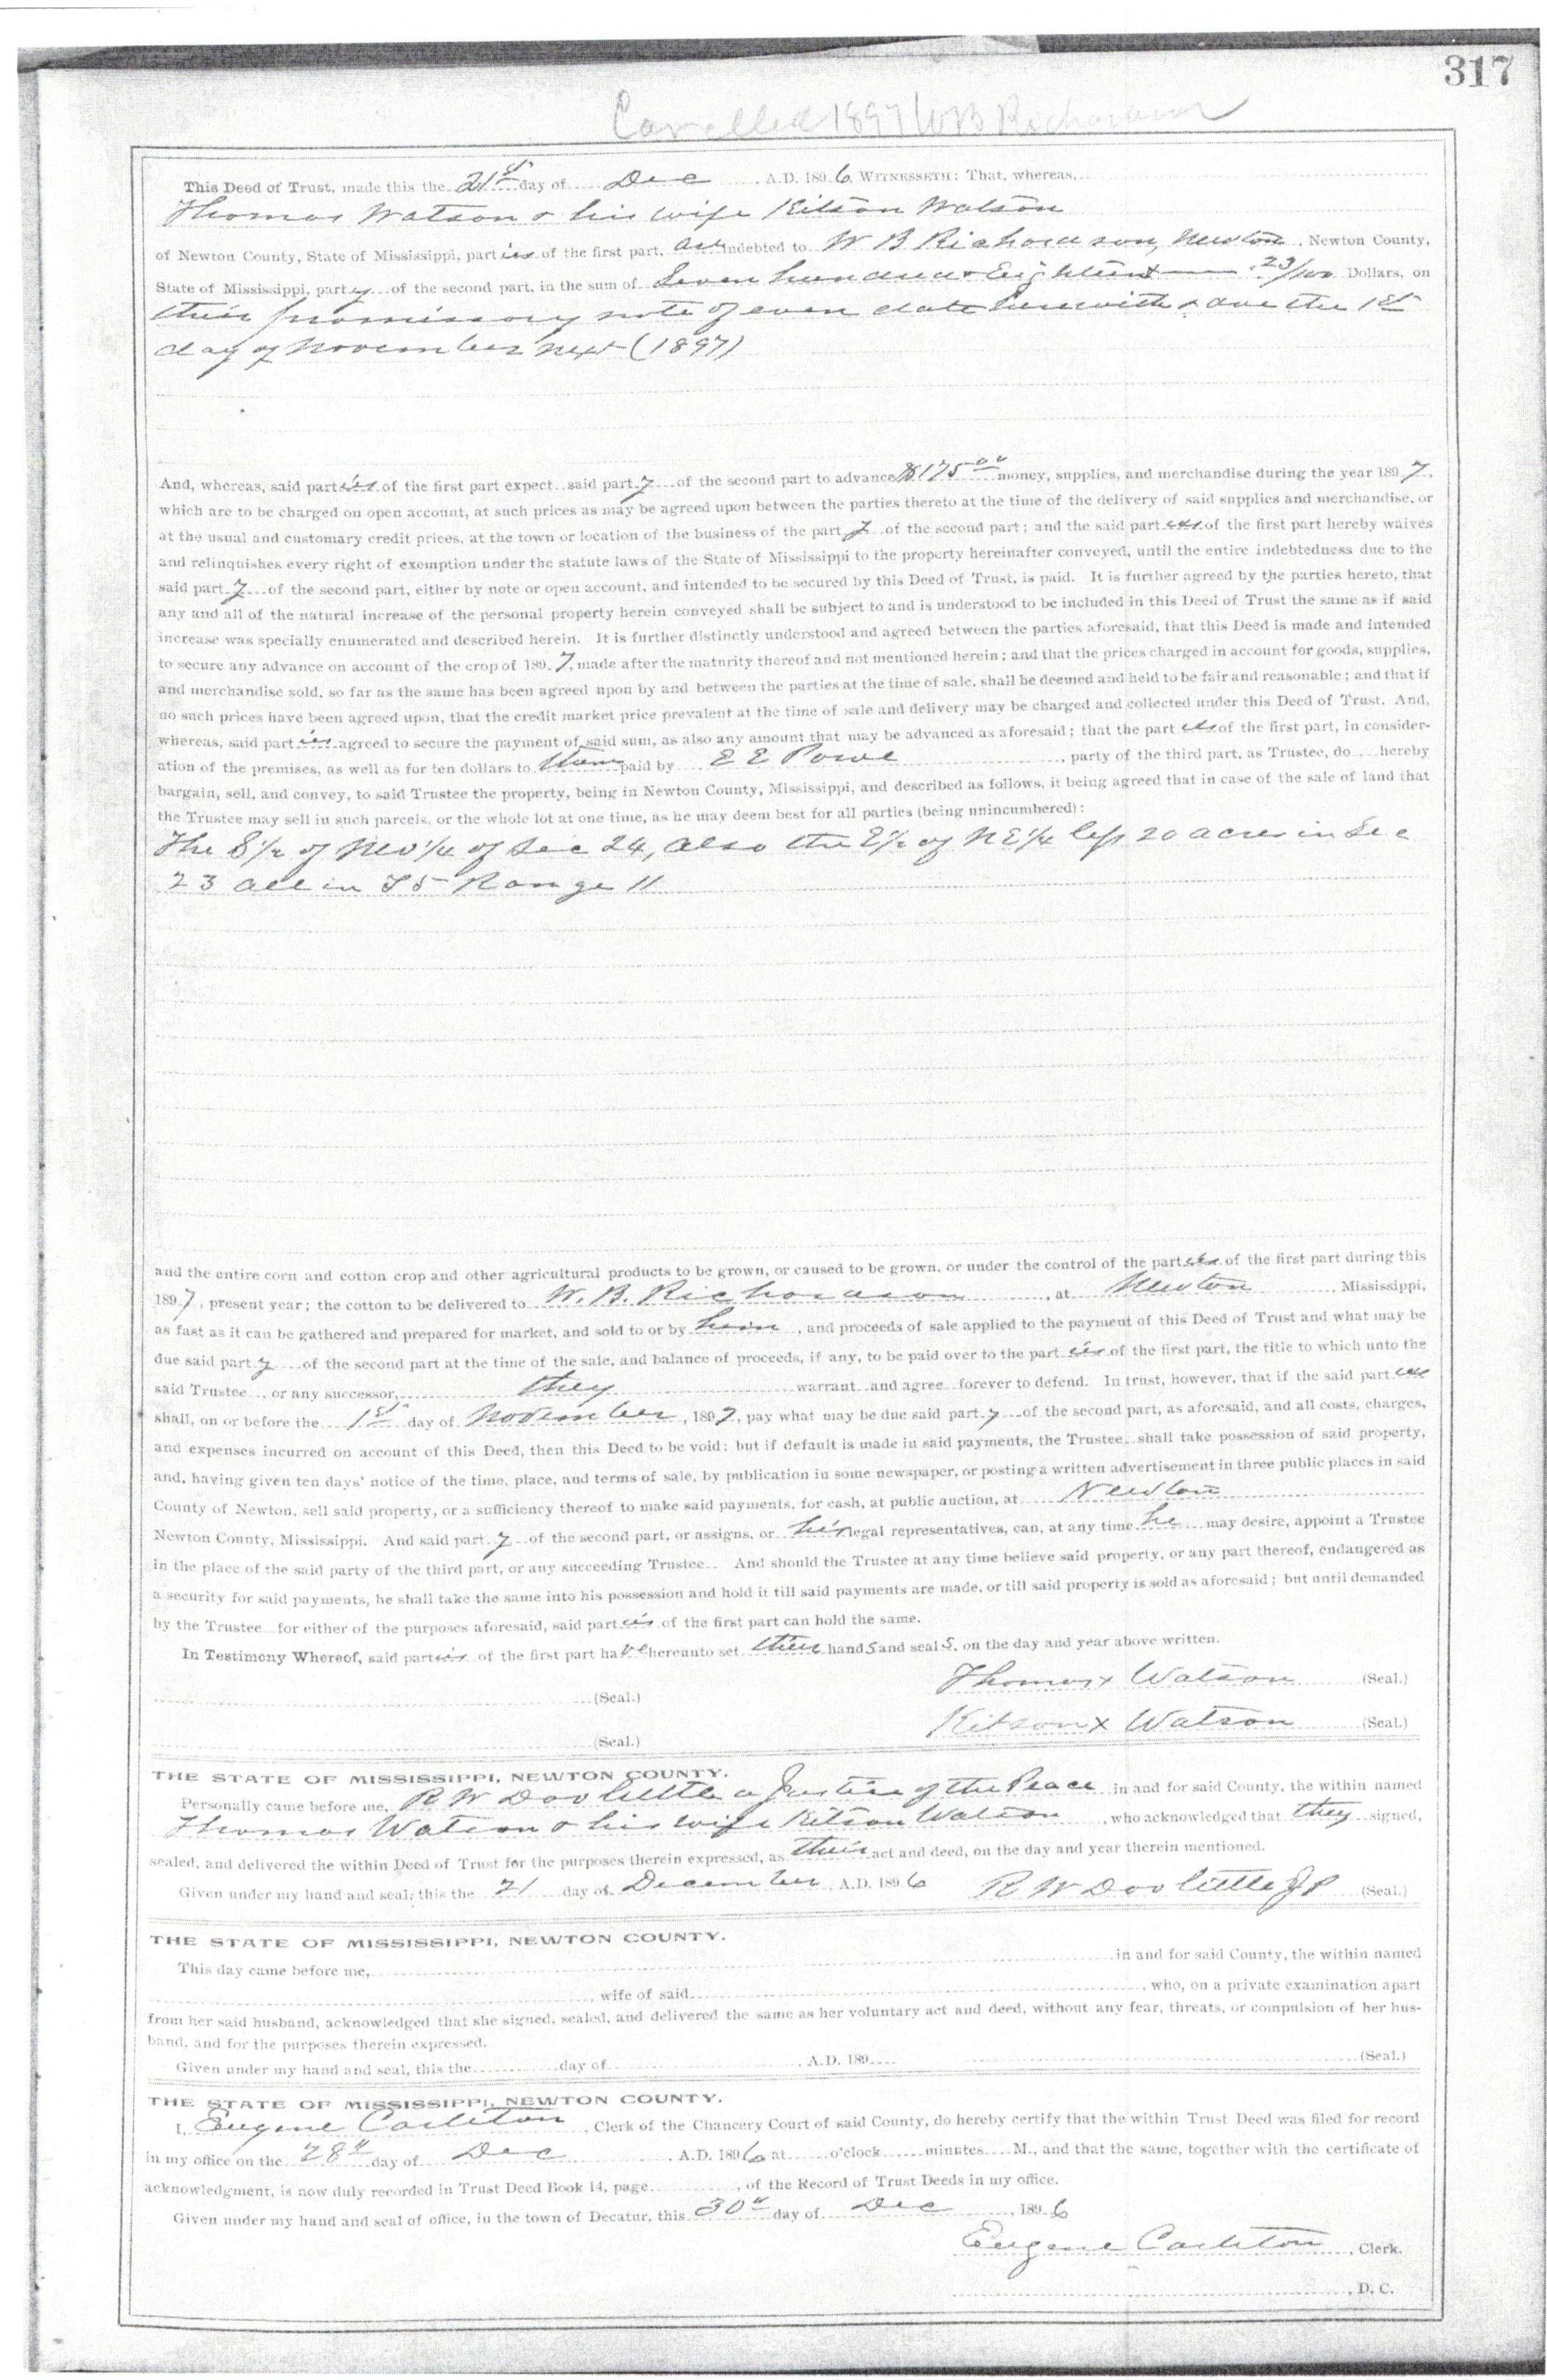 317
Cancelled 1897 W B Richardson
This Deed of Trust, made this the 21st day of Dec A.D. 1896, WITNESSETH: That, whereas,
Thomas Watson & his wife Kitson Watson
of Newton County, State of Mississippi, parties of the first part, are indebted to W B Richardson, Newton, Newton County,
State of Mississippi, party of the second part, in the sum of Seven hundred & Eighteen & 23/100 Dollars, on
their promissory note of even date herewith & due the 1st
day of November next (1897)
And, whereas, said parties of the first part expect said party of the second part to advance $175.00 money, supplies, and merchandise during the year 1897,
which are to be charged on open account, at such prices as may be agreed upon between the parties thereto at the time of the delivery of said supplies and merchandise, or
at the usual and customary credit prices, at the town or location of the business of the party of the second part; and the said parties of the first part hereby waives
and relinquishes every right of exemption under the statute laws of the State of Mississippi to the property hereinafter conveyed, until the entire indebtedness due to the
said party of the second part, either by note or open account, and intended to be secured by this Deed of Trust, is paid. It is further agreed by the parties hereto, that
any and all of the natural increase of the personal property herein conveyed shall be subject to and is understood to be included in this Deed of Trust the same as if said
increase was specially enumerated and described herein. It is further distinctly understood and agreed between the parties aforesaid, that this Deed is made and intended
to secure any advance on account of the crop of 1897, made after the maturity thereof and not mentioned herein; and that the prices charged in account for goods, supplies,
and merchandise sold, so far as the same has been agreed upon by and between the parties at the time of sale, shall be deemed and held to be fair and reasonable; and that if
no such prices have been agreed upon, that the credit market price prevalent at the time of sale and delivery may be charged and collected under this Deed of Trust. And,
whereas, said parties agreed to secure the payment of said sum, as also any amount that may be advanced as aforesaid; that the parties of the first part, in consider-
ation of the premises, as well as for ten dollars to them paid by E E Powe, party of the third part, as Trustee, do hereby
bargain, sell, and convey, to said Trustee the property, being in Newton County, Mississippi, and described as follows, it being agreed that in case of the sale of land that
the Trustee may sell in such parcels, or the whole lot at one time, as he may deem best for all parties (being unincumbered):
The S 1/2 of NW 1/4 of Sec 24, also the E 1/2 of NE 1/4 less 20 acres in Sec
23 all in T5 Range 11
and the entire corn and cotton crop and other agricultural products to be grown, or caused to be grown, or under the control of the parties of the first part during this
1897, present year; the cotton to be delivered to W. B. Richardson, at Newton, Mississippi,
as fast as it can be gathered and prepared for market, and sold to or by him, and proceeds of sale applied to the payment of this Deed of Trust and what may be
due said party of the second part at the time of the sale, and balance of proceeds, if any, to be paid over to the parties of the first part, the title to which unto the
said Trustee, or any successor, they warrant and agree forever to defend. In trust, however, that if the said parties
shall, on or before the 1st day of November, 1897, pay what may be due said party of the second part, as aforesaid, and all costs, charges,
and expenses incurred on account of this Deed, then this Deed to be void; but if default is made in said payments, the Trustee shall take possession of said property,
and, having given ten days' notice of the time, place, and terms of sale, by publication in some newspaper, or posting a written advertisement in three public places in said
County of Newton, sell said property, or a sufficiency thereof to make said payments, for cash, at public auction, at Newton
Newton County, Mississippi. And said party of the second part, or assigns, or his legal representatives, can, at any time he may desire, appoint a Trustee
in the place of the said party of the third part, or any succeeding Trustee. And should the Trustee at any time believe said property, or any part thereof, endangered as
a security for said payments, he shall take the same into his possession and hold it till said payments are made, or till said property is sold as aforesaid; but until demanded
by the Trustee for either of the purposes aforesaid, said parties of the first part can hold the same.
In Testimony Whereof, said parties of the first part have hereunto set their hands and seals, on the day and year above written.
Thomas x Watson (Seal.)
(Seal.)
Kitson x Watson (Seal.)
(Seal.)
THE STATE OF MISSISSIPPI, NEWTON COUNTY.
Personally came before me, R W Doolittle a Justice of the Peace in and for said County, the within named
Thomas Watson & his wife Kitson Watson, who acknowledged that they signed,
sealed, and delivered the within Deed of Trust for the purposes therein expressed, as their act and deed, on the day and year therein mentioned.
Given under my hand and seal, this the 21 day of December, A.D. 1896 R W Doolittle JP (Seal.)
THE STATE OF MISSISSIPPI, NEWTON COUNTY.
This day came before me, in and for said County, the within named
, wife of said, who, on a private examination apart
from her said husband, acknowledged that she signed, sealed, and delivered the same as her voluntary act and deed, without any fear, threats, or compulsion of her hus-
band, and for the purposes therein expressed.
Given under my hand and seal, this the day of, A.D. 189 (Seal.)
THE STATE OF MISSISSIPPI, NEWTON COUNTY.
I, Eugene Carleton, Clerk of the Chancery Court of said County, do hereby certify that the within Trust Deed was filed for record
in my office on the 28th day of Dec, A.D. 1896 at o'clock minutes M., and that the same, together with the certificate of
acknowledgment, is now duly recorded in Trust Deed Book 14, page, of the Record of Trust Deeds in my office.
Given under my hand and seal of office, in the town of Decatur, this 30th day of Dec, 1896
Eugene Carleton, Clerk.
, D. C.